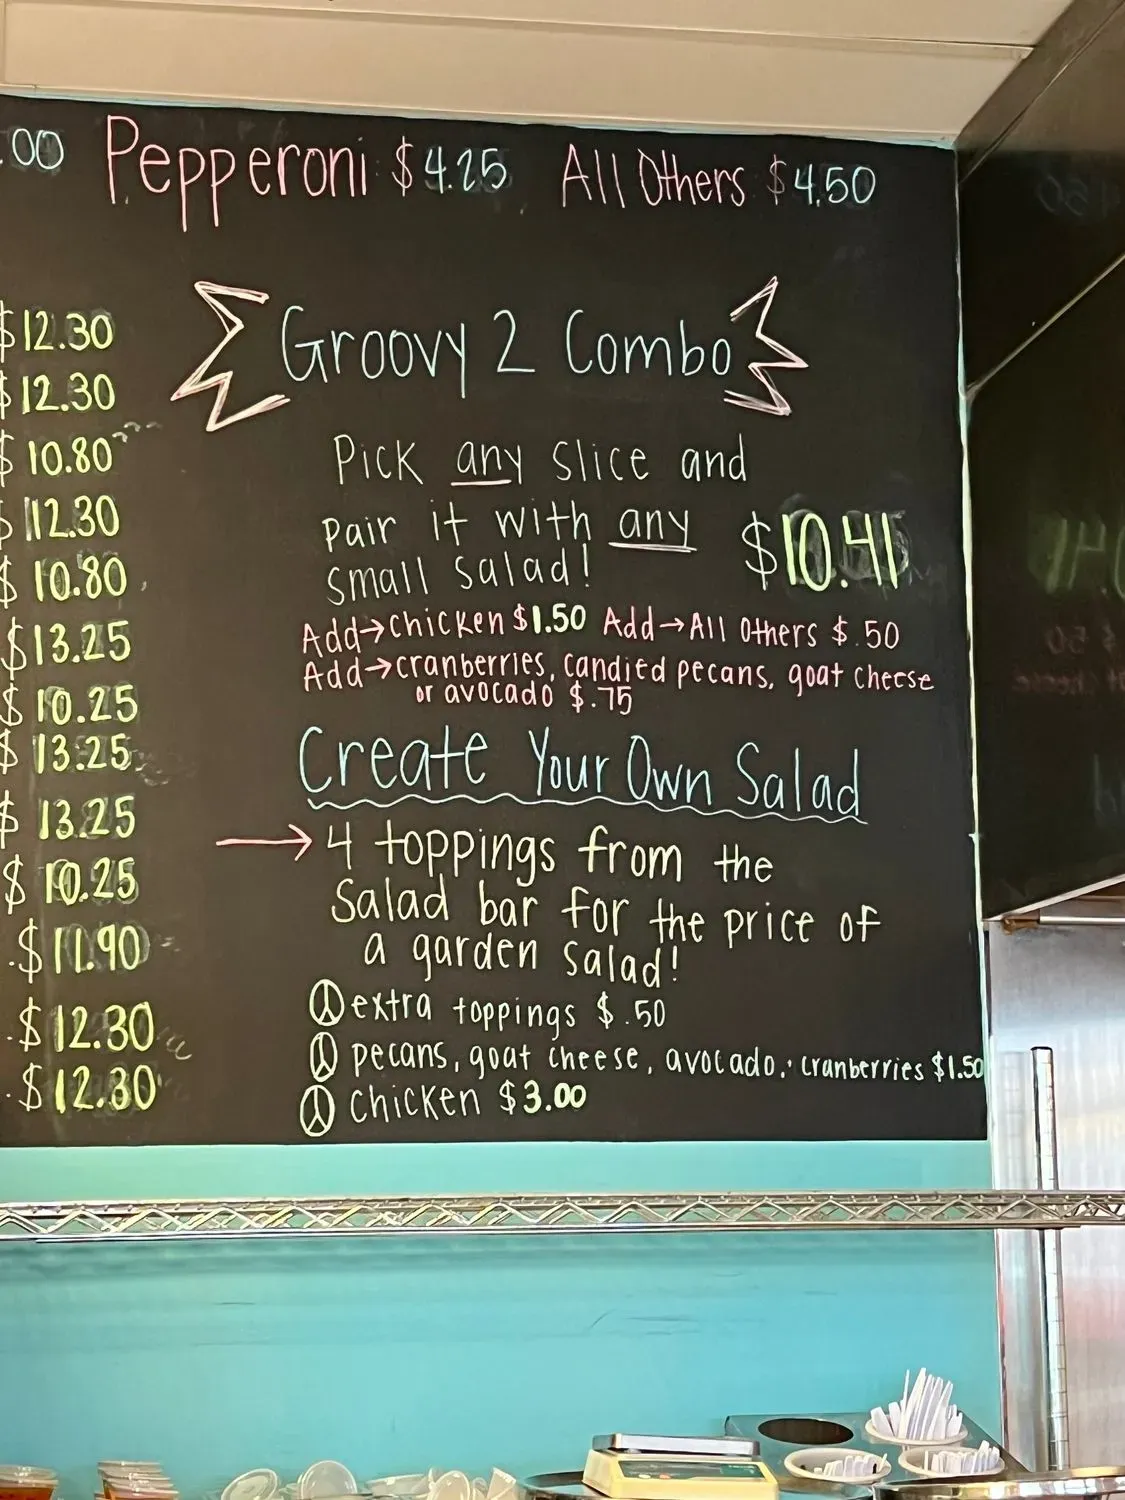 .00 Pepperoni $4.25 All Others $4.50
Groovy 2 Combo
Pick any slice and
pair it with any
small salad!
$10.41
Add→chicken $1.50 Add→All Others $.50
Add→cranberries, candied pecans, goat cheese
or avocado $.75
Create Your Own Salad
→4 toppings from the
Salad bar for the price of
a garden salad!
extra toppings $.50
pecans, goat cheese, avocado, cranberries $1.50
chicken $3.00
$12.30
$12.30
$10.80
$12.30
$10.80
$13.25
$10.25
$13.25
$13.25
$10.25
.$11.90
.$12.30
.$12.30